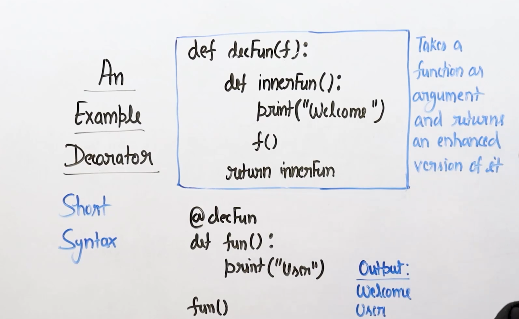 An
Example
Decorator
def decFun(f):
def innerFun():
print("Welcome")
f()
return innerFun
Takes a
function as
argument
and returns
an enhanced
version of it
Short
Syntax
@decFun
def fun():
print("User")
fun()
Output:
Welcome
User